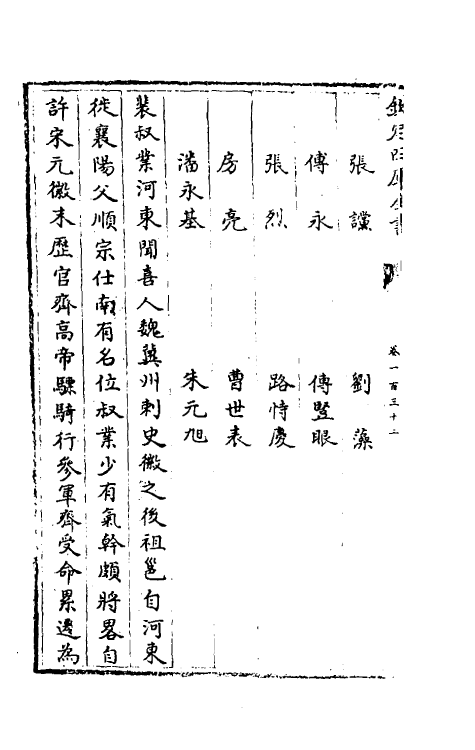 欽定四庫全書
卷一百三十二
張讜　劉藻
傅永　傅豎眼
張烈　路恃慶
房亮　曹世表
潘永基　朱元旭
裴叔業河東聞喜人魏冀州刺史徽之後祖邕自河東
徙襄陽父順宗仕南有名位叔業少有氣幹頗將畧自
許宋元徽末歷官齊高帝驃騎行參軍齊受命累遷為